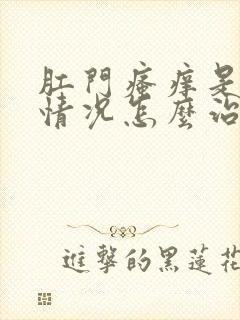 肛門瘙痒是
情况怎麼治
進擊的黑蓮花